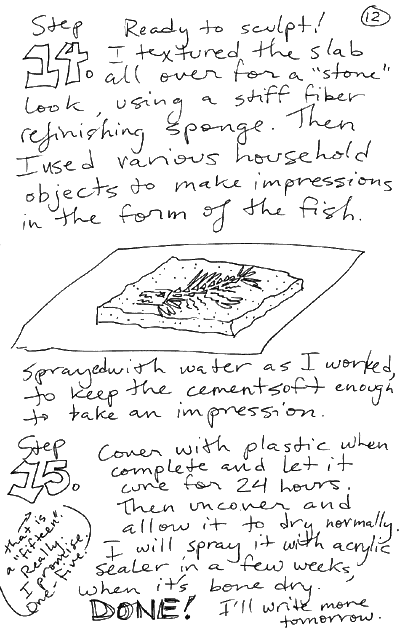 12
Step Ready to sculpt!
14. I textured the slab
all over for a "stone"
look, using a stiff fiber
refinishing sponge. Then
I used various household
objects to make impressions
in the form of the fish.
Sprayed with water as I worked,
to keep the cement soft enough
to take an impression.
Step
15. Cover with plastic when
complete and let it
cure for 24 hours.
Then uncover and
allow it to dry normally.
I will spray it with acrylic
sealer in a few weeks,
when it's bone dry.
that is
a "fifteen".
Really.
I promise.
One-Five.
DONE! I'll write more
tomorrow.